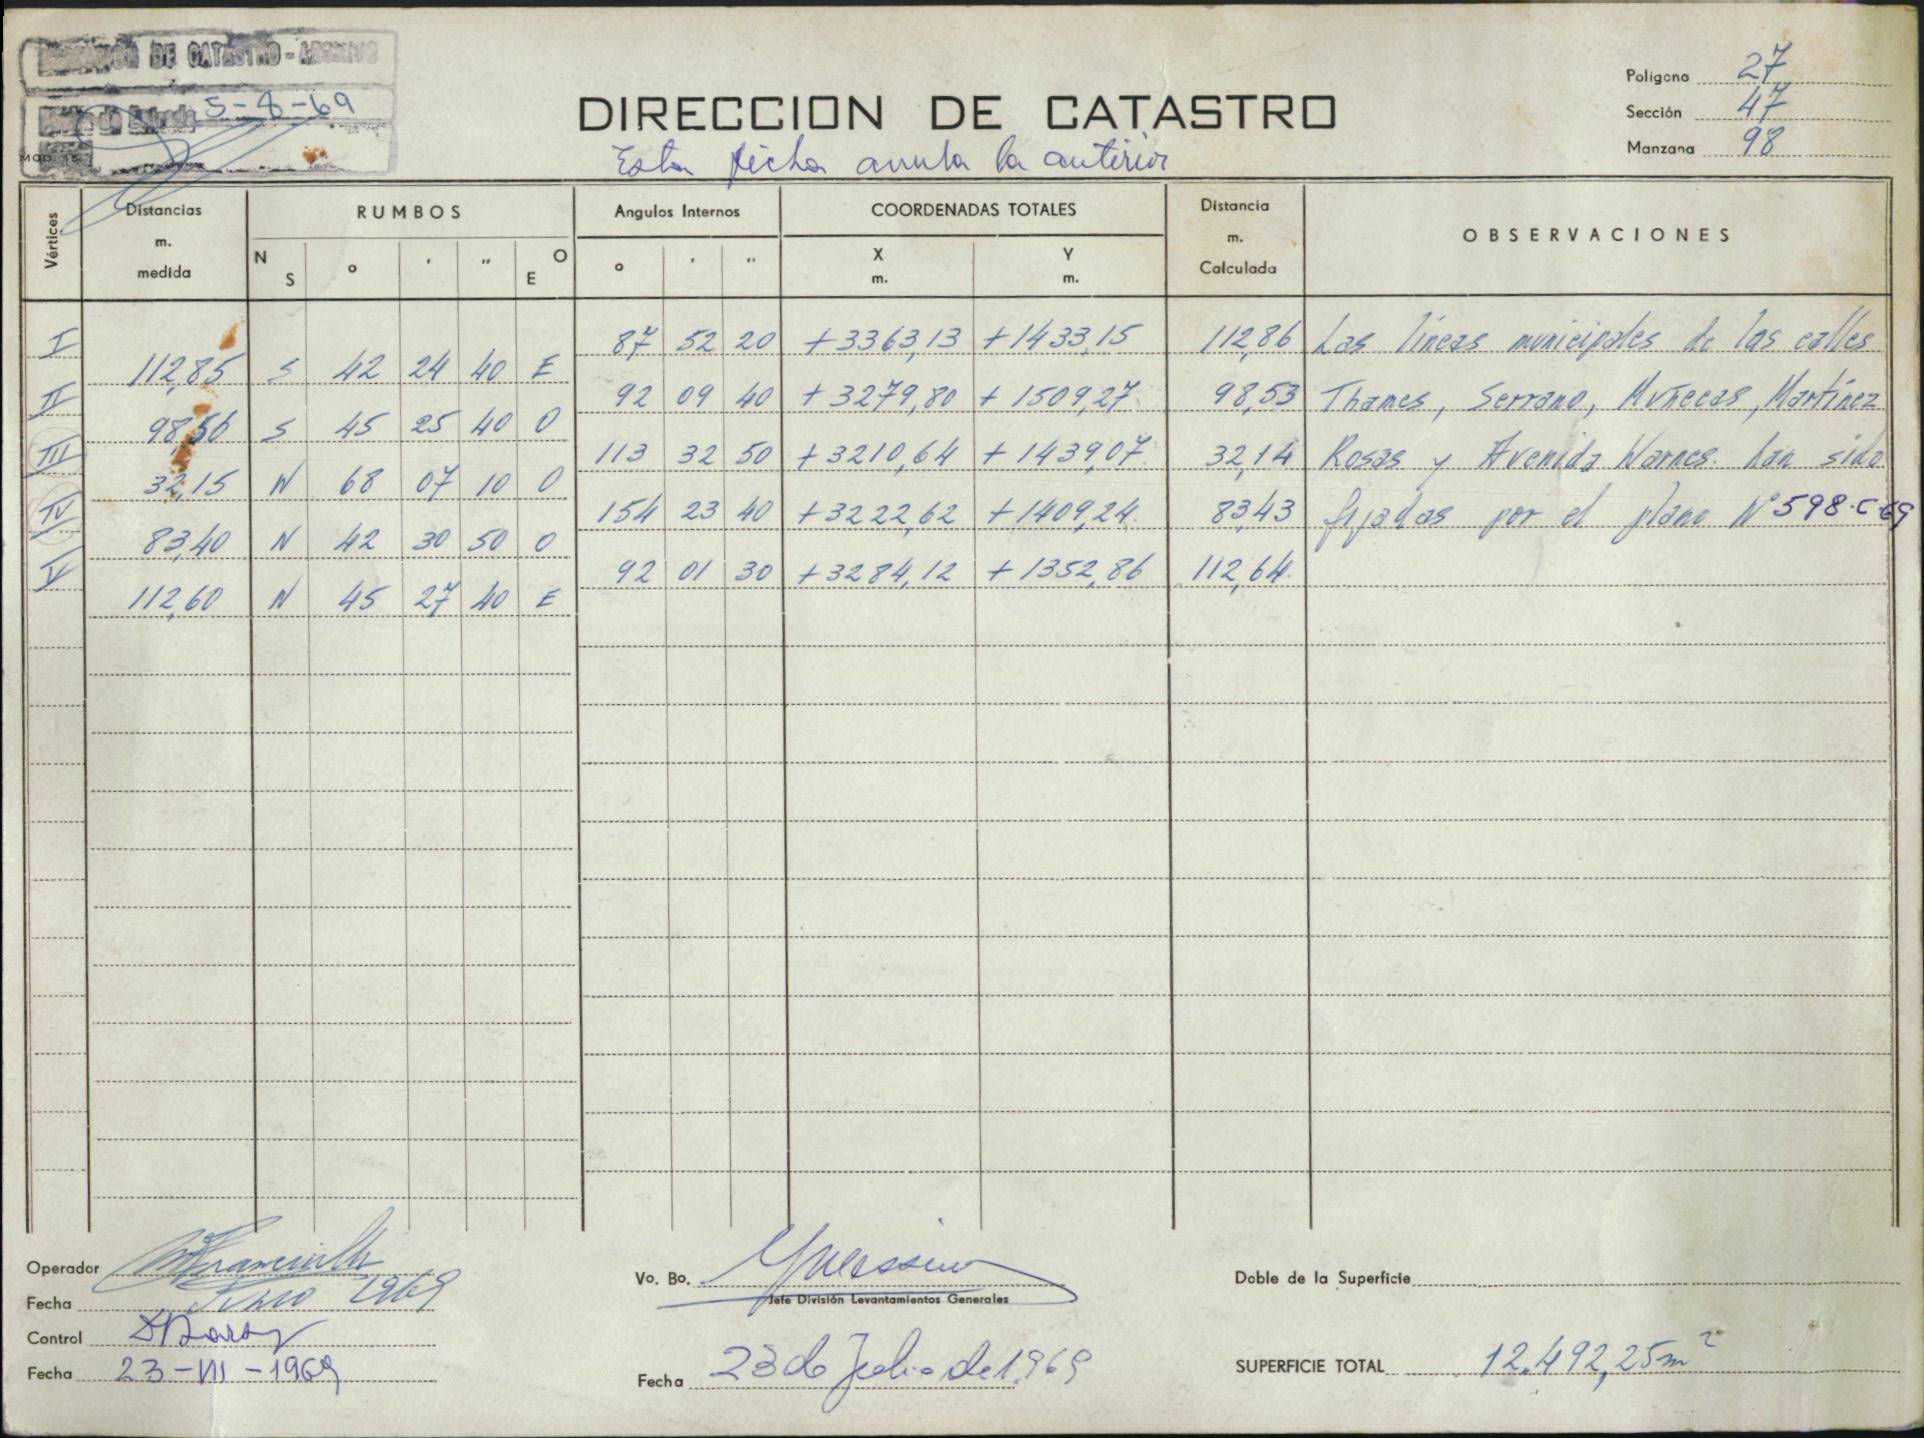 DE CATASTRO - ARCHIVO
5-8-69
MOD. 15
DIRECCION DE CATASTRO
Esta ficha anula la anterior
Polígono 27
Sección 47
Manzana 98
Vértices Distancias m. medida RUMBOS Angulos Internos COORDENADAS TOTALES Distancia m. Calculada OBSERVACIONES
N S o ' " O E o ' " X m. Y m.
I 87 52 20 +3363,13 +1433,15 112,86 Las líneas municipales de las calles
112,85 S 42 24 40 E
II 92 09 40 +3279,80 +1509,27 98,53 Thames, Serrano, Muñecas, Martínez
98,56 S 45 25 40 O
III 113 32 50 +3210,64 +1439,07 32,14 Rosas y Avenida Warnes. han sido
32,15 N 68 07 10 O
IV 154 23 40 +3222,62 +1409,24 83,43 fijadas por el plano Nº 598-C-69
83,40 N 42 30 50 O
V 92 01 30 +3284,12 +1352,86 112,64
112,60 N 45 27 40 E
Operador
Fecha 1969
Control
Fecha 23-VII-1969
Vo. Bo.
Jefe División Levantamientos Generales
Fecha 23 de Julio de 1969
Doble de la Superficie
SUPERFICIE TOTAL 12.492,25 m²